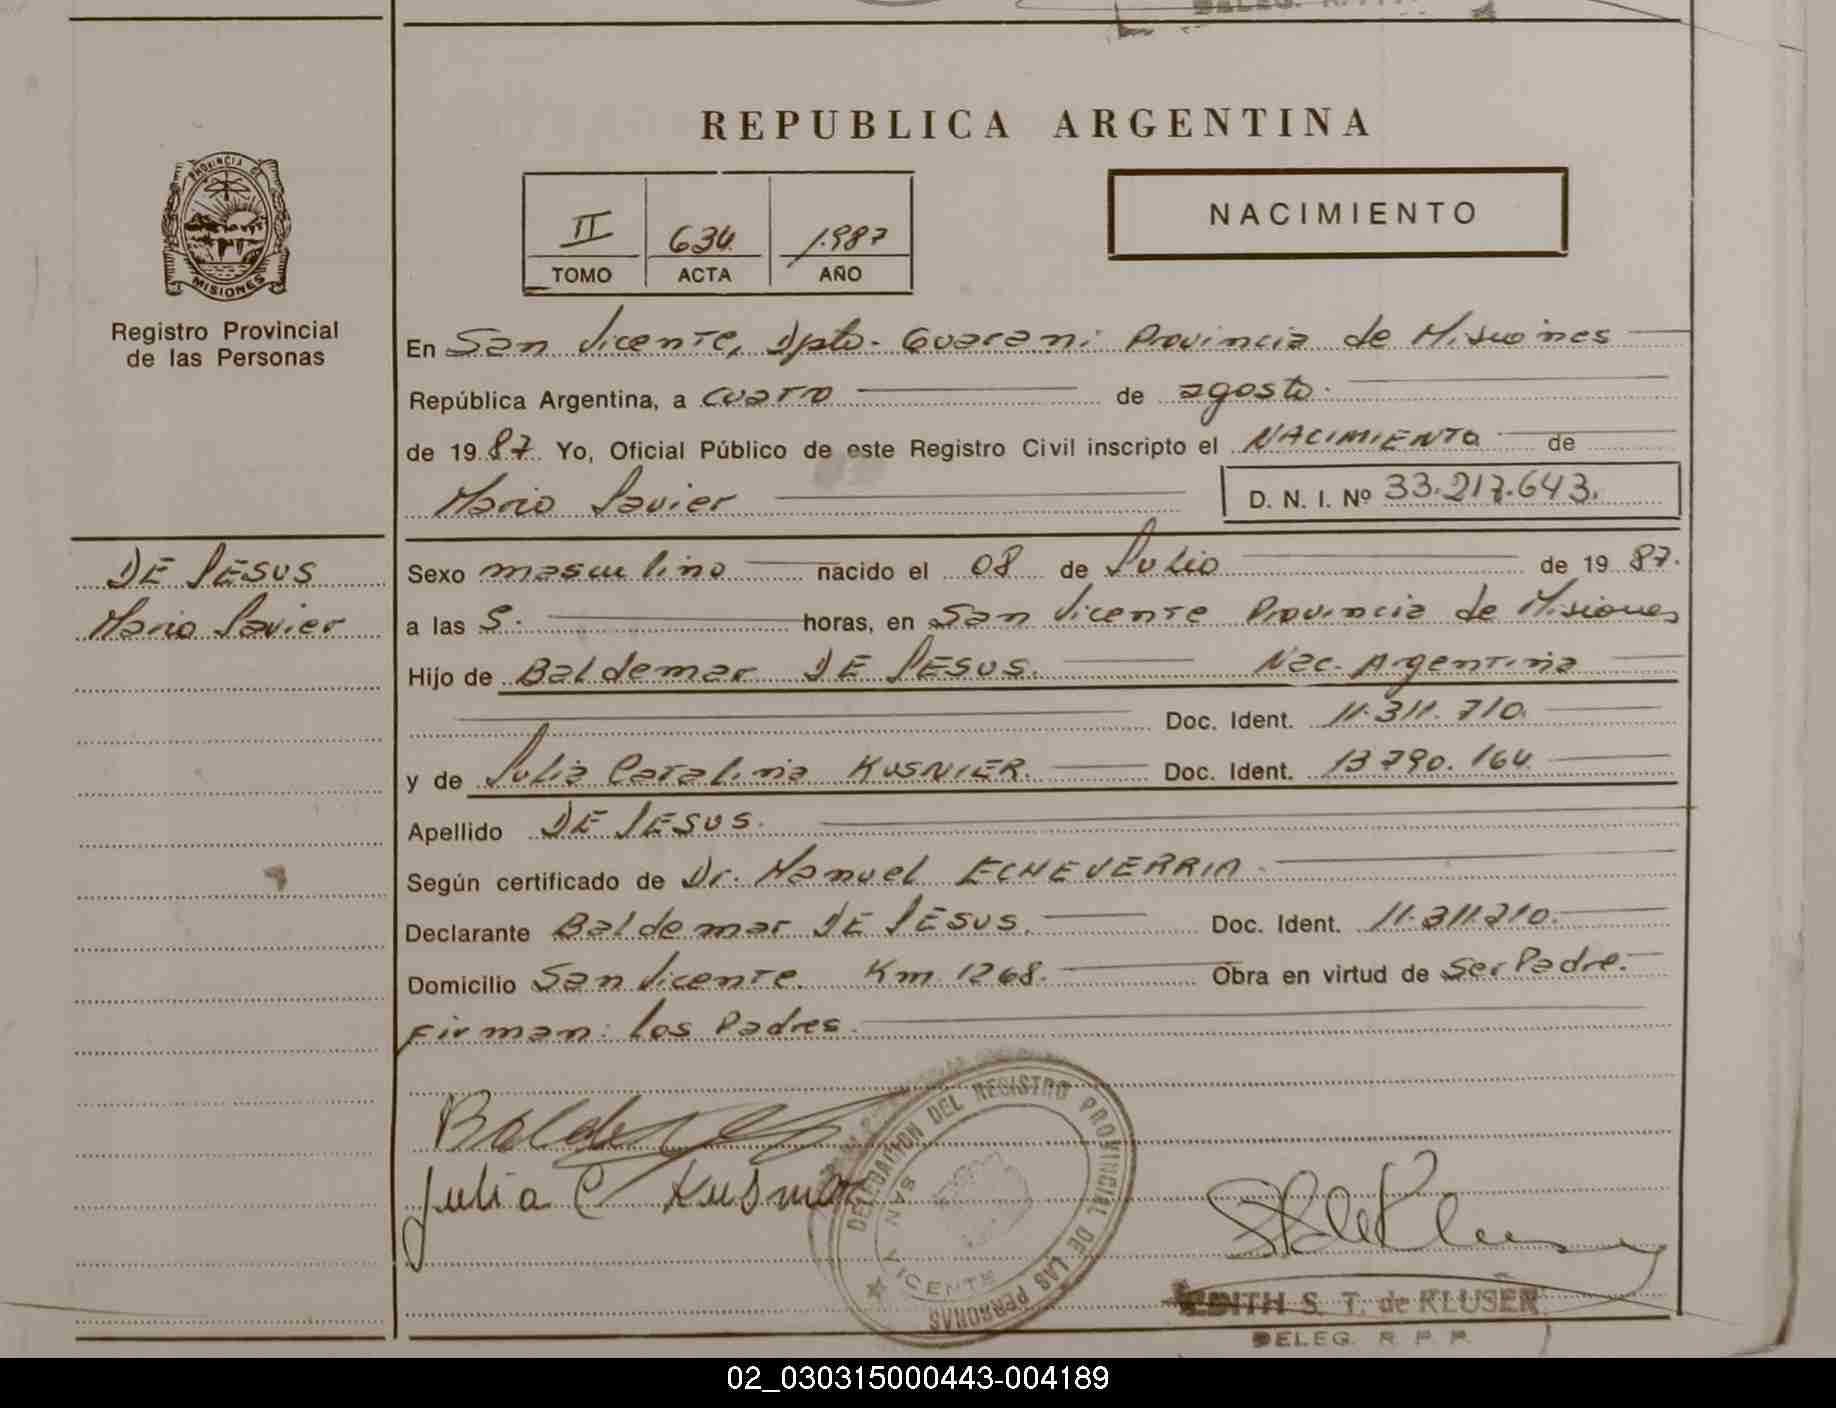 REPUBLICA ARGENTINA
PROVINCIA DE
MISIONES
Registro Provincial
de las Personas
II 634 1.987
TOMO ACTA AÑO
NACIMIENTO
En San Vicente, Dpto. Guarani Provincia de Misiones
República Argentina, a cuatro de agosto.
de 19 87. Yo, Oficial Público de este Registro Civil inscripto el NACIMIENTO de
Mario Javier D. N. I. Nº 33.217.643.
DE JESUS
Mario Javier
Sexo masculino nacido el 08 de Julio de 19 87.
a las 5. horas, en San Vicente Provincia de Misiones
Hijo de Baldemar DE JESUS. Nac. Argentina
Doc. Ident. 11.311.710.
y de Julia Catalina KUSNIER. Doc. Ident. 13.790.164
Apellido DE JESUS.
Según certificado de Dr. Manuel ECHEVERRIA.
Declarante Baldemar DE JESUS. Doc. Ident. 11.311.210.
Domicilio San Vicente. Km. 1268. Obra en virtud de ser Padre.
Firman: los Padres.
Julia C
DELEGACION DEL REGISTRO PROVINCIAL DE LAS PERSONAS
SAN VICENTE
EDITH S. T. de KLUSER
DELEG. R. P. P.
02_030315000443-004189